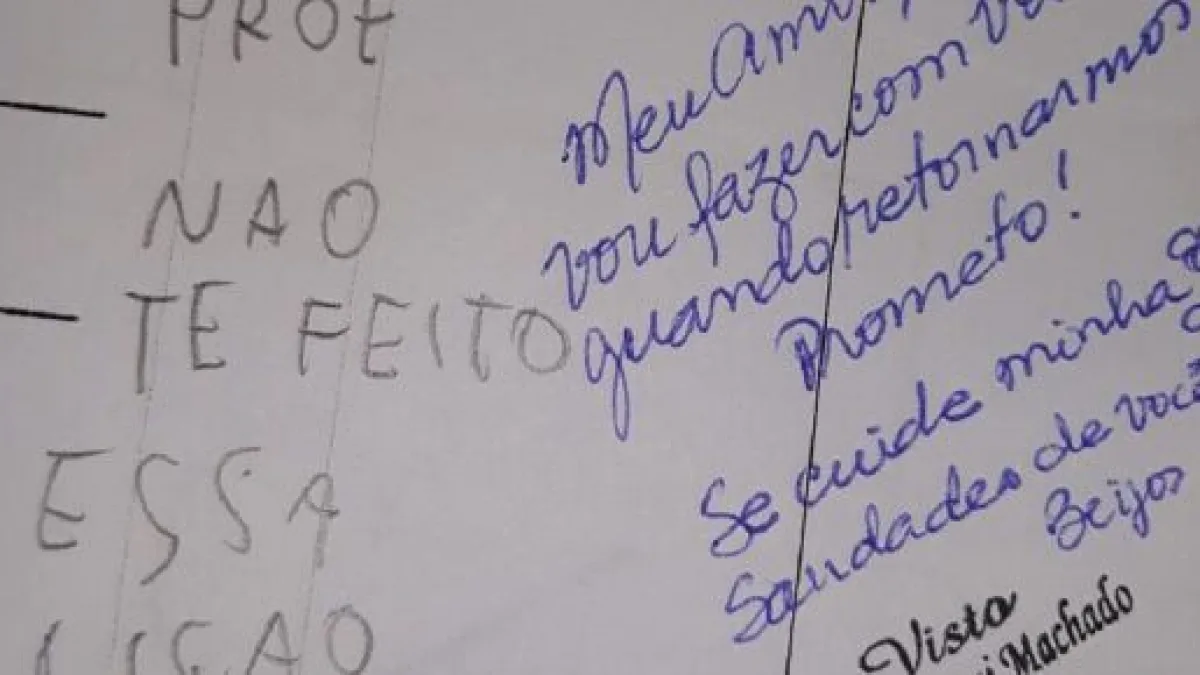 PROF
NAO
TE FEITO
ESSA
LISAO
Meu
vou fazer com
quando retornarmos
Prometo!
Se cuide minha
Saudades de você
Beijos
Visto
Machado